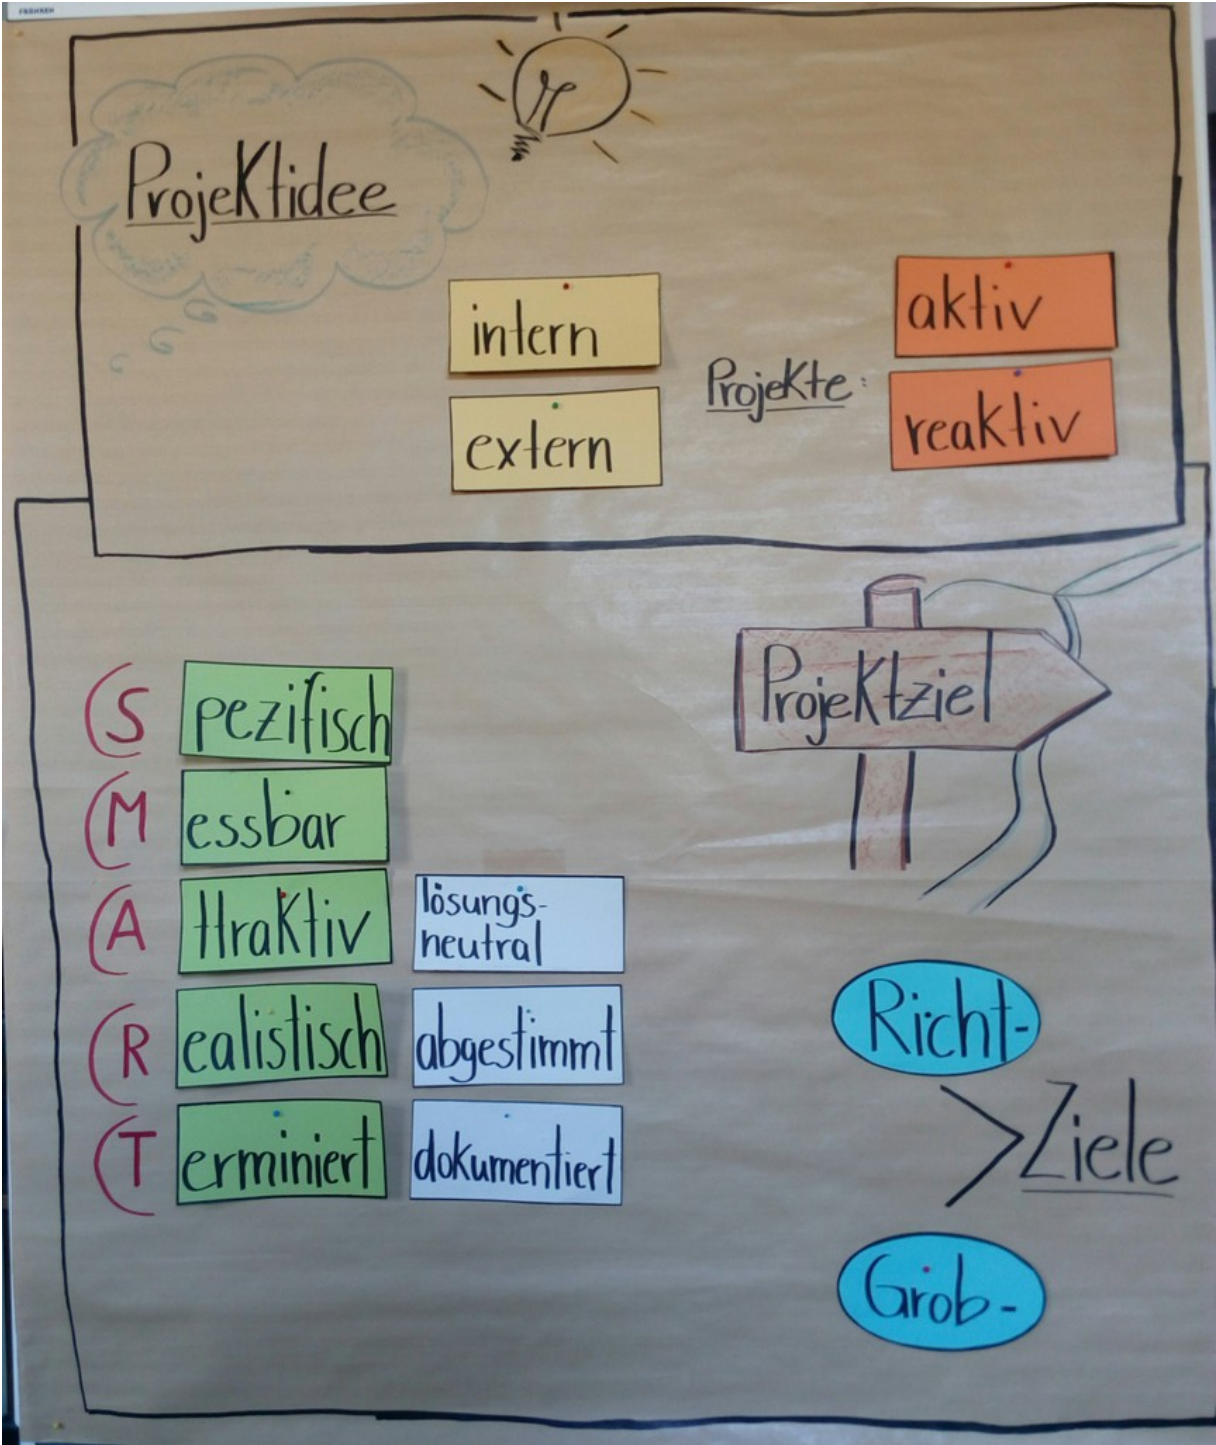 FRANKEN
Projektidee
intern
extern
Projekte:
aktiv
reaktiv
Projektziel
S pezifisch
M essbar
A ttraktiv
lösungs-
neutral
R ealistisch
abgestimmt
T erminiert
dokumentiert
Richt-
> Ziele
Grob-